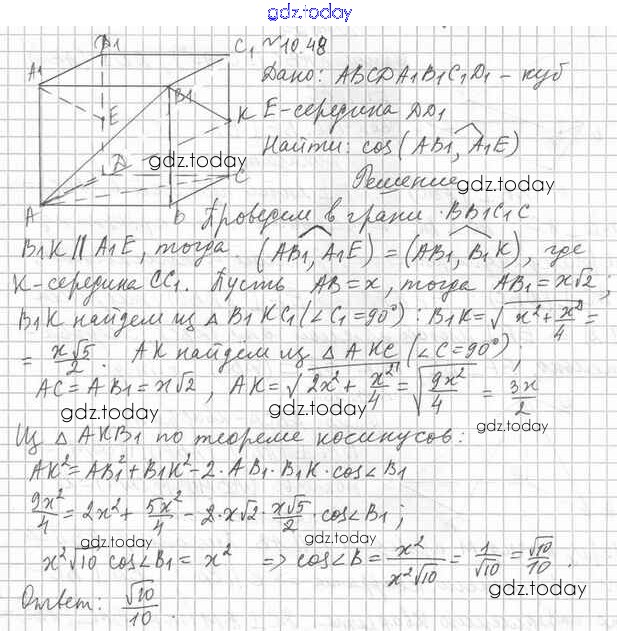 gdz.today
D1 C1 №10.48
A1 Дано: ABCDA1B1C1D1 – куб
B1
E K E-середина DD1
gdz.today
D C Найти: cos(AB1, A1E)
Решение
gdz.today
A B Проведем в грани BB1C1C
B1K ∥ A1E, тогда (AB1, A1E) = (AB1, B1K), где
K-середина CC1. Пусть AB=x, тогда AB1=x√2;
B1K найдем из △B1KC1 (∠C1=90°): B1K=√(x²+x²/4)=
=x√5/2. AK найдем из △AKC (∠C=90°);
AC=AB1=x√2, AK=√(2x²+x²/4)=√(9x²/4)=3x/2
gdz.today gdz.today gdz.today
Из △AKB1 по теореме косинусов:
AK²=AB1²+B1K²-2·AB1·B1K·cos∠B1
9x²/4=2x²+5x²/4-2·x√2·x√5/2·cos∠B1;
gdz.today gdz.today
x²√10 cos∠B1=x² => cos∠B=x²/x²√10=1/√10=√10/10.
gdz.today
Ответ: √10/10.
gdz.today